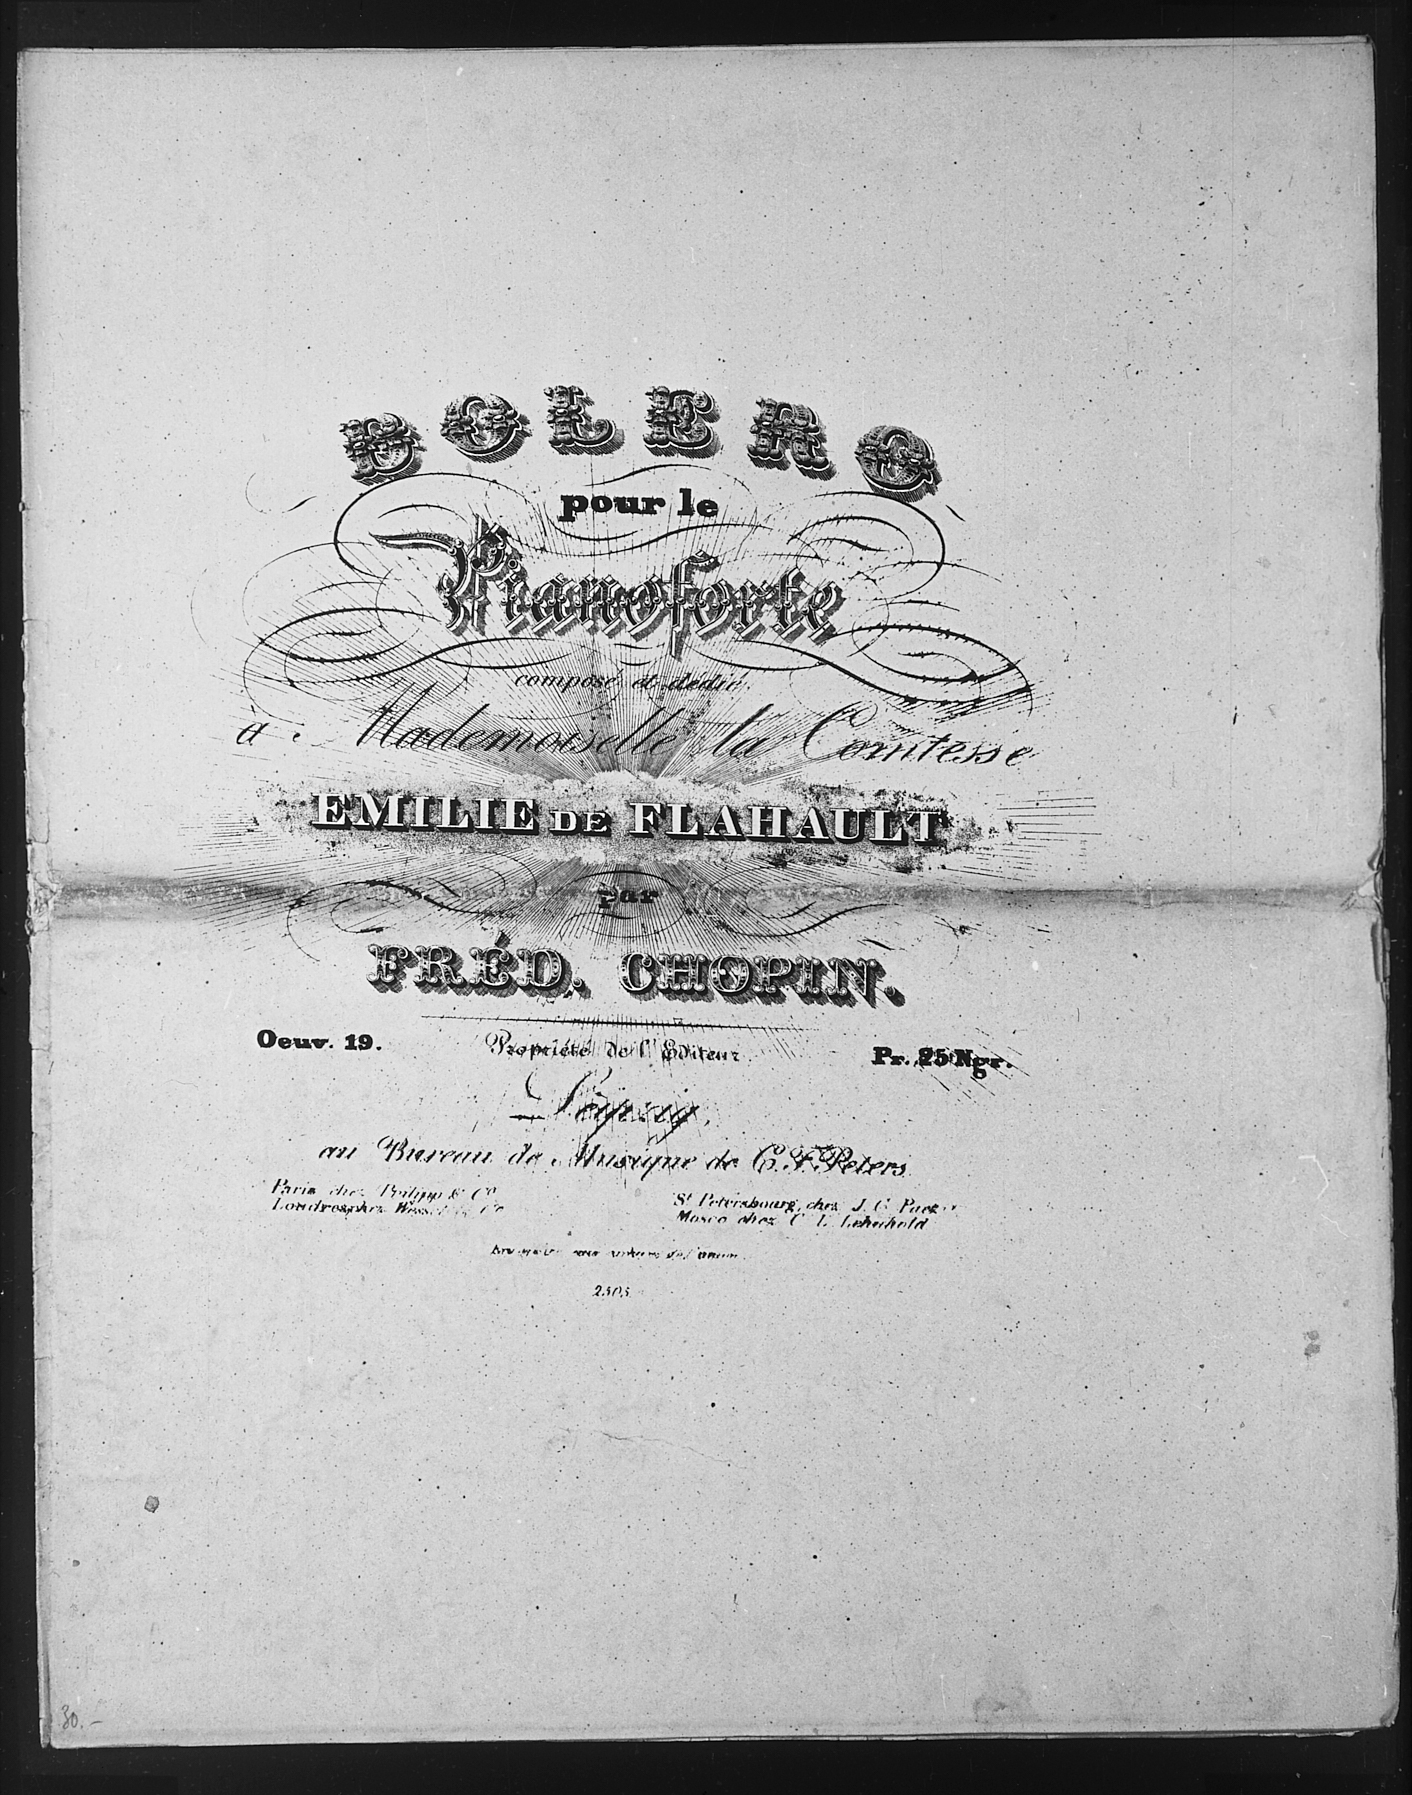 BOLERO
pour le
Pianoforte
composé et dedié
à Mademoiselle la Comtesse
EMILIE DE FLAHAULT
par
FRÉD. CHOPIN.
Oeuv. 19.
Propriété de l'Editeur.
Pr. 25 Ngr.
Leipzig,
au Bureau de Musique de C. F. Peters
Paris chez Prilipp & Co
Londres chez Wessel & Co
St Petersbourg, chez J. C. Paez
Mosco chez C. L. Lehnhold
2505
30.–